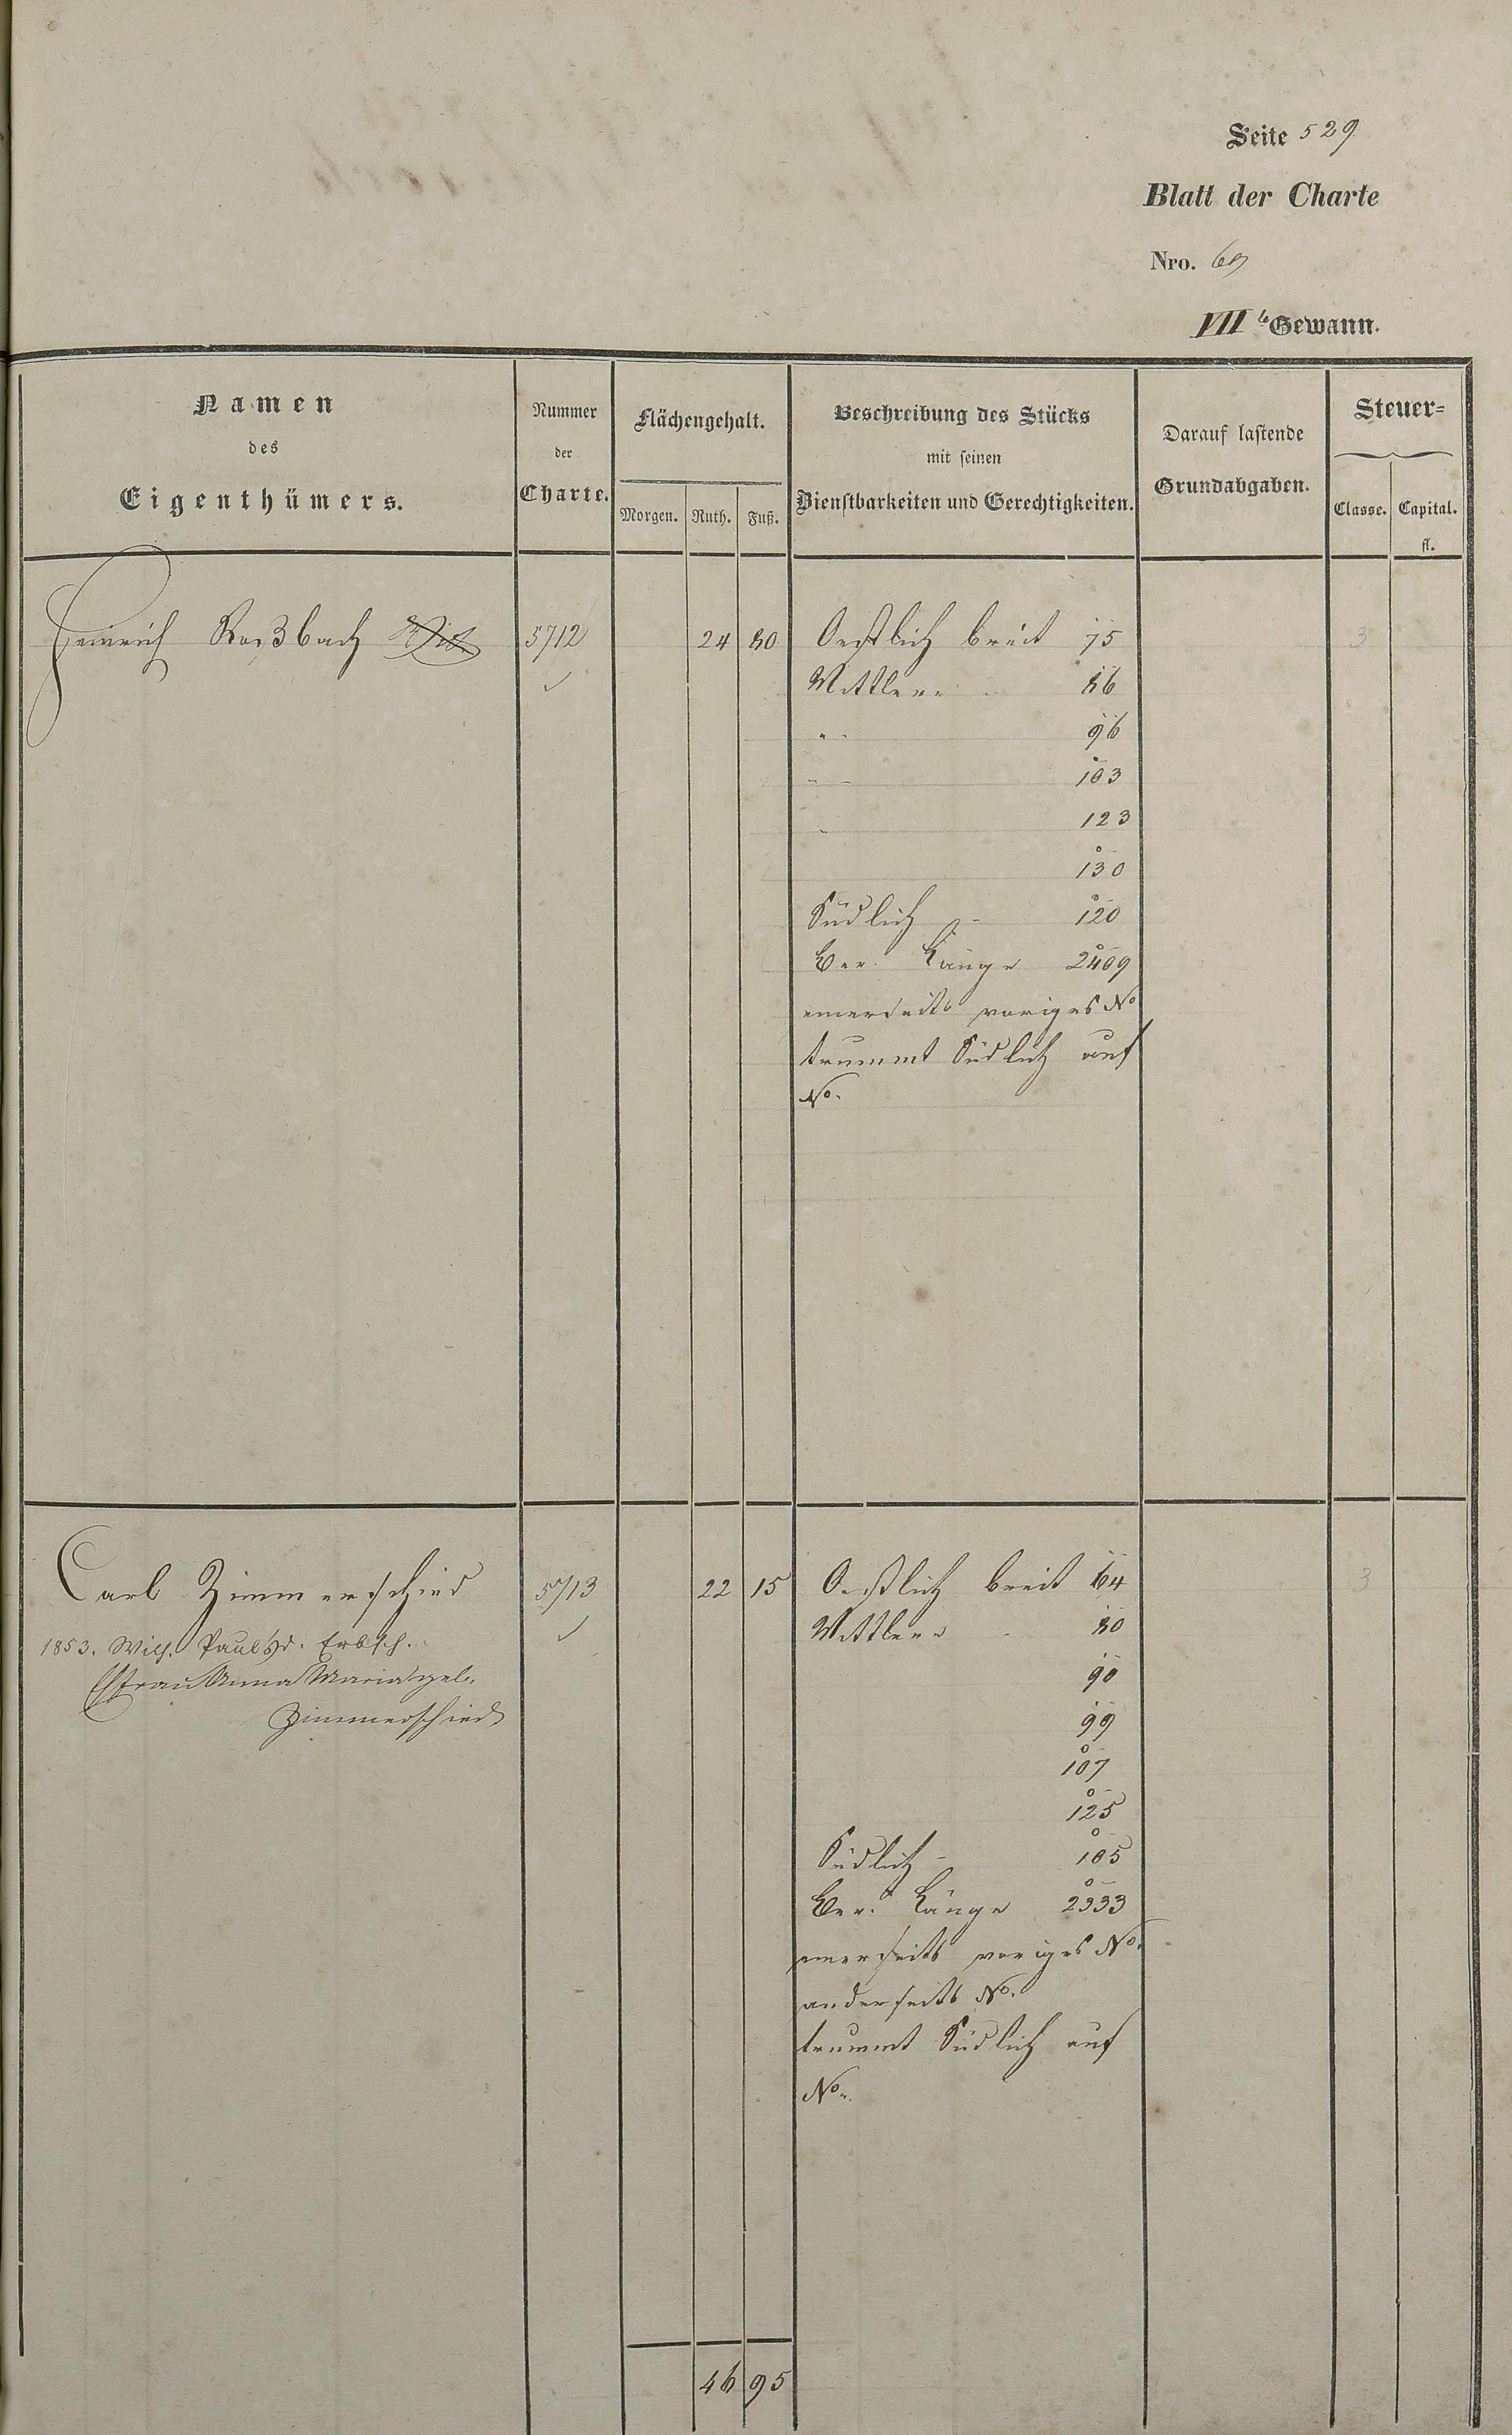 Seite 529
Blatt der Charte
Nro. 69
VII te Gewann.
Namen
des
Eigenthümers.
Nummer
der
Charte.
Flächengehalt.
Morgen. Ruth. Fuß.
Beschreibung des Stücks
mit seinen
Dienstbarkeiten und Gerechtigkeiten.
Darauf lastende
Grundabgaben.
Steuer=
Classe. Capital.
fl.
Heinrich Roßbach 5712 24 80 Oestlich breit 75 3
Mittlere 86
" 96
" 103
" 123
130
Südlich 120
Ber. Länge 2409
einerseits voriges No
trummt Südlich auf
No.
Carl Zimmerschied 5713 22 15 Oestlich breit 64 3
1853. Wilh. Paul's Erbsch. Mittlere 80
Efrau Anna Maria geb. 90
Zimmerschied 99
107
125
Südlich 105
Ber. Länge 2333
einerseits voriges No.
anderseits No.
trummt Südlich auf
No.
46 95